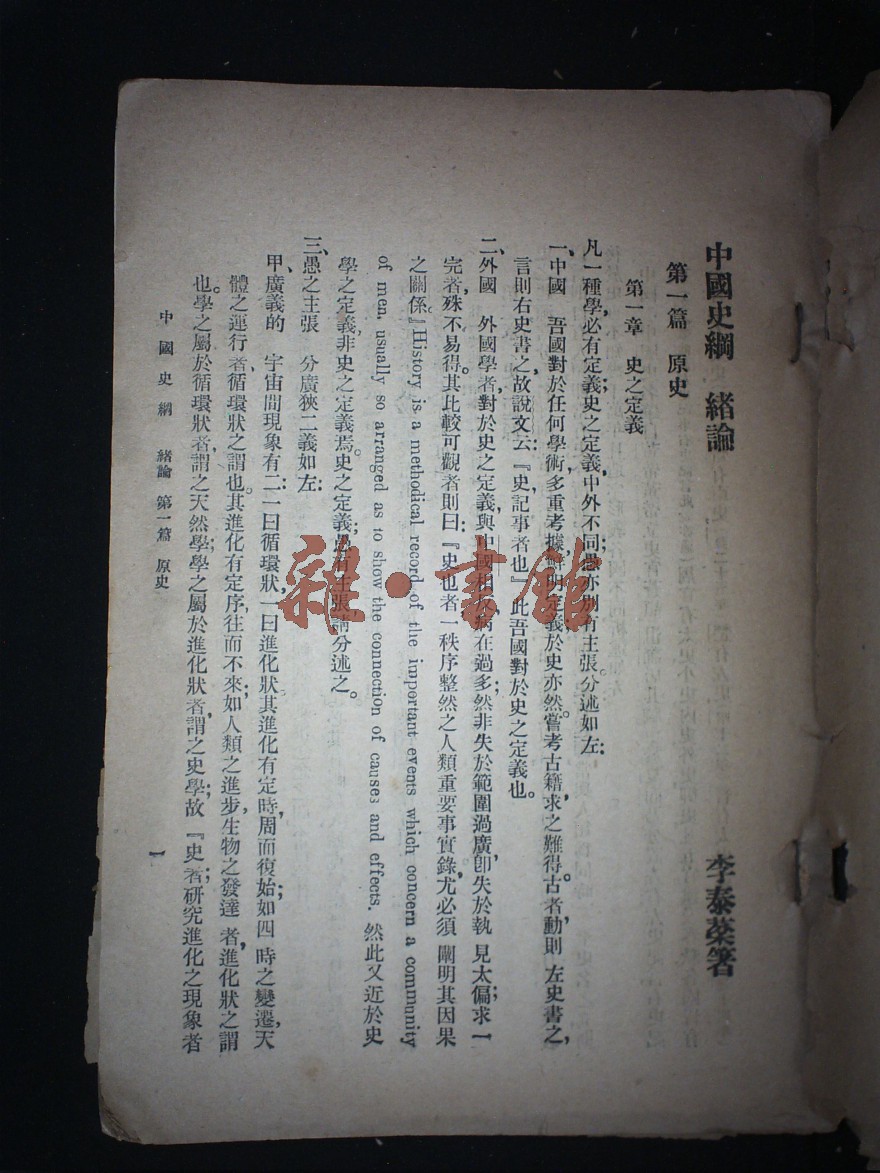 中國史綱　緒論　李泰棻箸
第一篇　原史
第一章　史之定義
凡一種學，必有定義；史之定義，中外不同；愚亦別有主張。分述如左：
一、中國　吾國對於任何學術，多重考據，鮮明定義；於史亦然。嘗考古籍，求之難得。古者動則左史書之，
言則右史書之，故說文云：『史，記事者也』此吾國對於史之定義也。
二、外國　外國學者，對於史之定義，與中國相反，病在過多；然非失於範圍過廣，卽失於執見太偏；求一
完者，殊不易得。其比較可觀者則曰：『史也者一秩序整然之人類重要事實錄，尤必須闡明其因果
之關係。』History is a methodical record of the important events which concern a community
of men, usually so arranged as to show the connection of causes and effects. 然此又近於史
學之定義，非史之定義焉。史之定義，愚有主張；請分述之。
三、愚之主張　分廣狹二義如左：
甲、廣義的　宇宙間現象有二：一曰循環狀，一曰進化狀。其進化有定時，周而復始；如四時之變遷，天
體之運行者，循環狀之謂也。其進化有定序，往而不來；如人類之進步，生物之發達者，進化狀之謂
也。學之屬於循環狀者，謂之天然學；學之屬於進化狀者，謂之史學；故『史者，研究進化之現象者
中國史綱　緒論　第一篇　原史
一
雜·書館